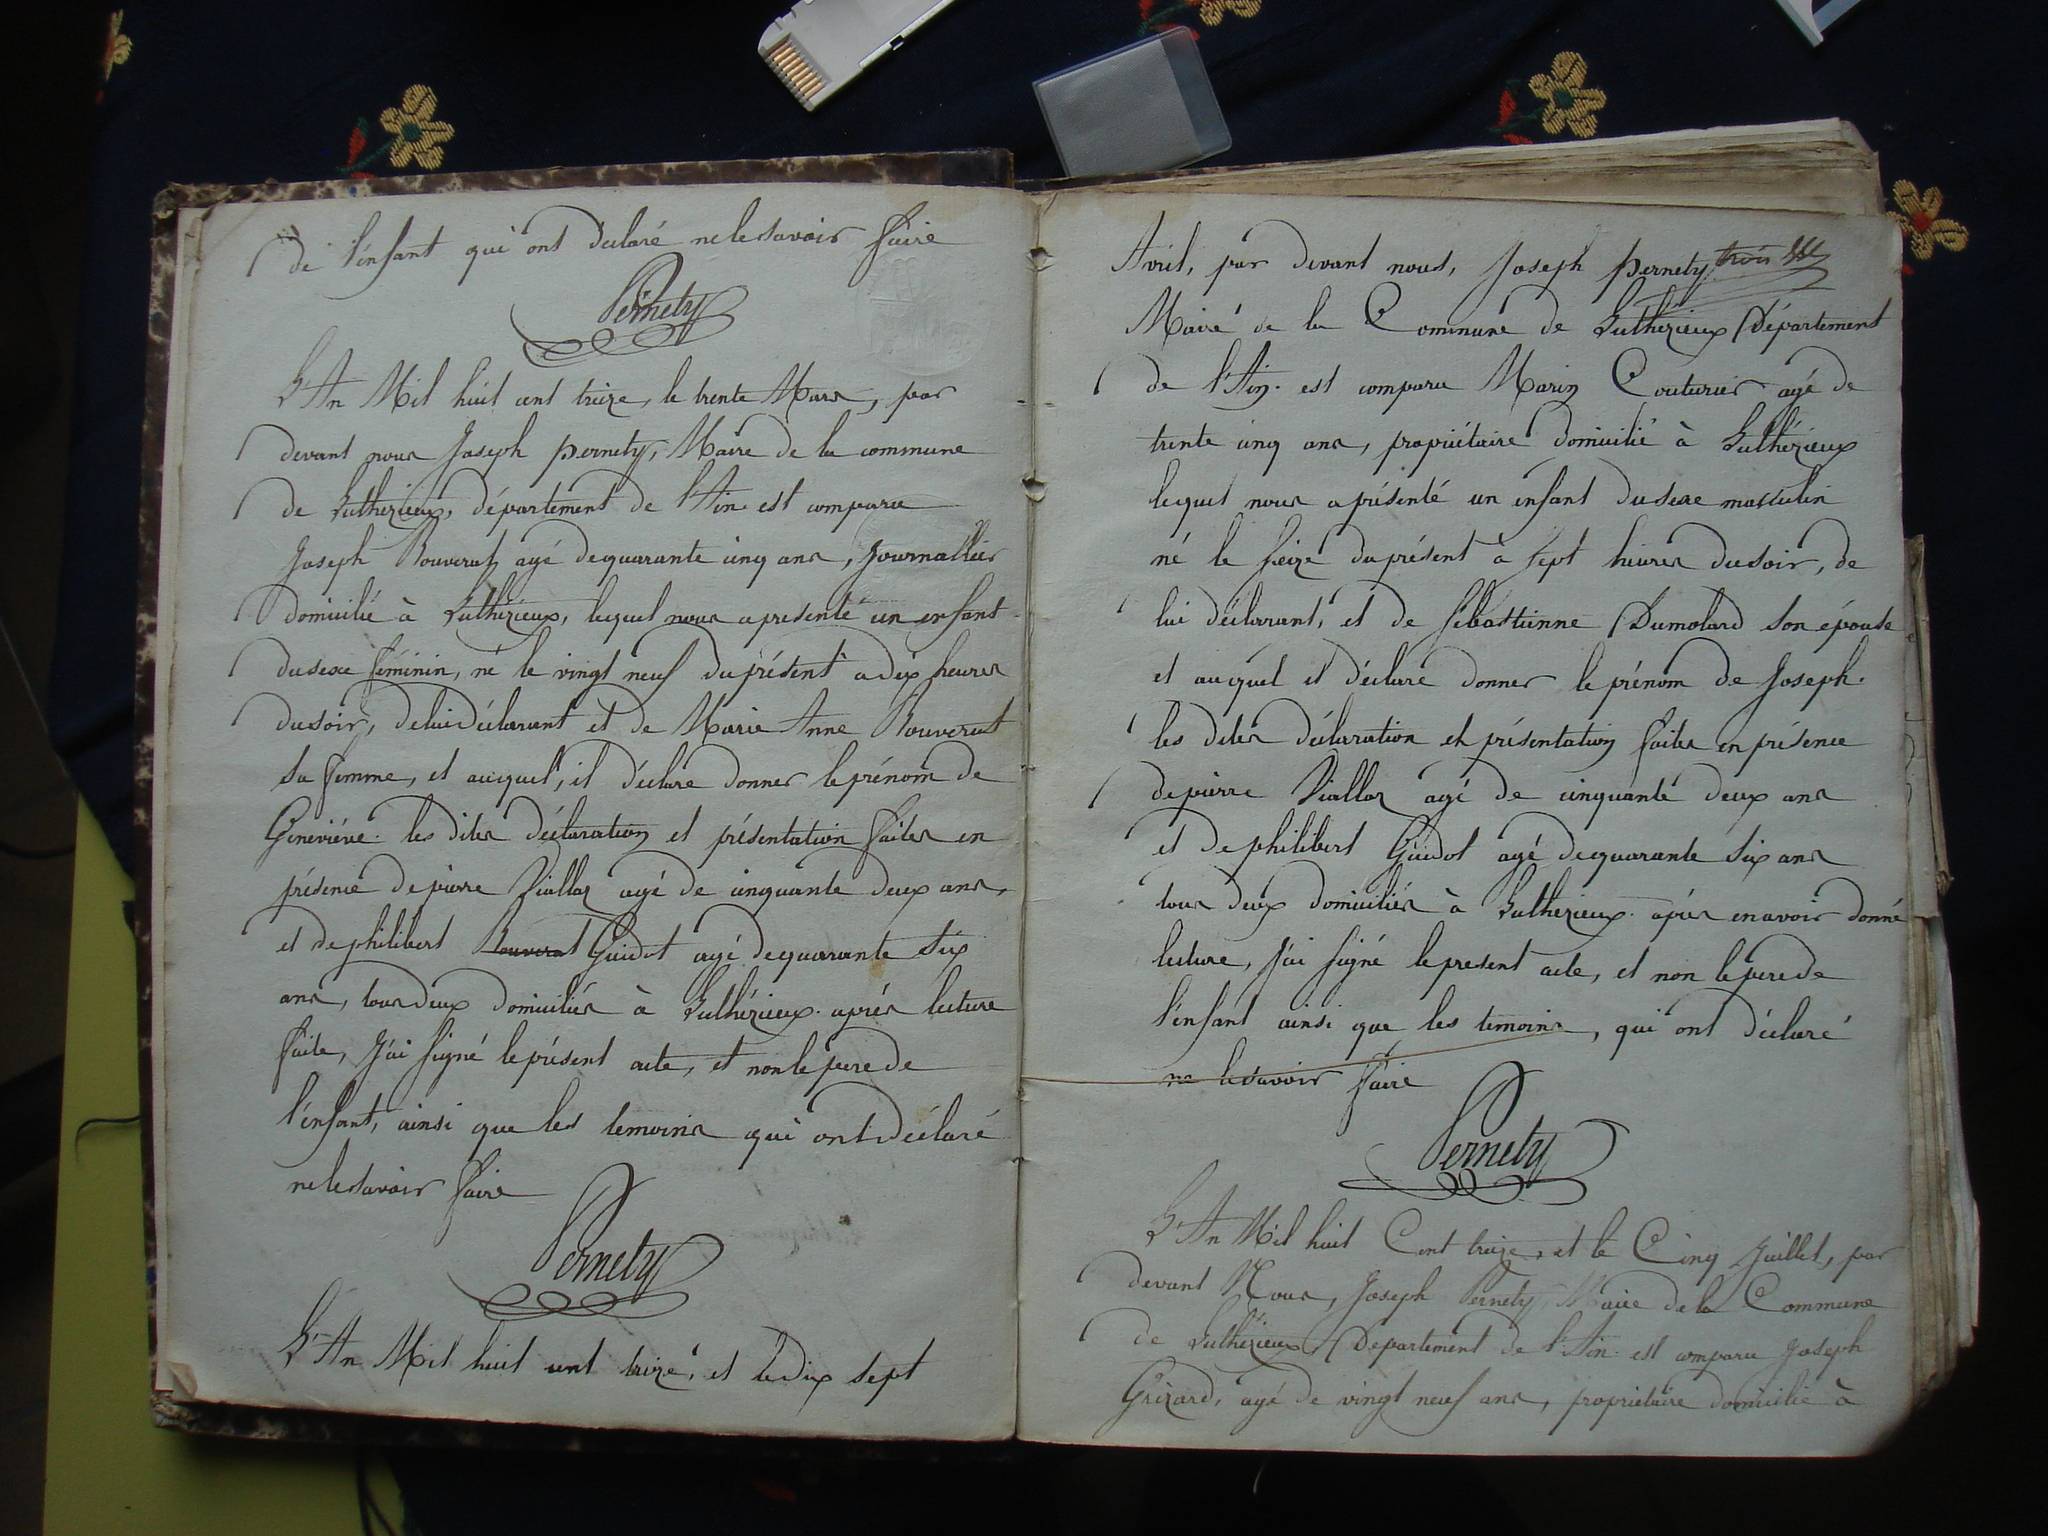 de l'énfant qui ont déclaré ne le savoir faire
Pernety
L'An Mil huit cent treize, le trente Mars, par
devant nous Joseph pernety, Maire de la commune
de Luthézieux, département de l'Ain est comparu
Joseph Bouverat agé de quarante cinq ans, Journallier
domicilié à Luthézieux, lequel nous a presenté un enfant
du sexe féminin, né le vingt neuf du présent a dix heures
du soir, de lui déclarant et de Marie Anne Bouverat
sa femme, et auquel, il déclare donner le prénom de
Geneviéve. les dites déclaration et présentation faites en
présence de pierre Viallaz agé de cinquante deux ans,
et de philibert Bouverat Guidot agé de quarante six
ans, tous deux domiciliés à Luthézieux. aprés lecture
faite, J'ai signé le présent acte, et non le pere de
l'énfant, ainsi que les temoins qui ont déclaré
ne le savoir faire
Pernety
L'An Mil huit cent treize, et le dix sept
Avril, par devant nous, Joseph pernety trois
Maire de la Commune de Luthézieux Département
de l'Ain. est comparu Marin Couturier agé de
trente cinq ans, propriétaire domicilié à Luthézieux
lequel nous a présenté un enfant du sexe masculin
né le seize du présent à sept heures du soir, de
lui déclarant, et de Sébastienne Dumolard son épouse
et auquel il déclare donner le prénom de Joseph.
les dites déclaration et présentation faites en présence
de pierre Viallaz agé de cinquante deux ans
et de philibert Guidot agé de quarante six ans
tous deux domiciliés à Luthézieux. aprés en avoir donné
lecture, J'ai signé le present acte, et non le pere de
l'énfant ainsi que les temoins, qui ont déclaré
ne le savoir faire
Pernety
L'An Mil huit Cent treize, et le Cinq Juillet, par
devant Nous, Joseph Pernety, Maire de la Commune
de Luthézieux, Département de l'Ain. est comparu Joseph
Grizard, agé de vingt neuf ans, propriétaire domicilié à